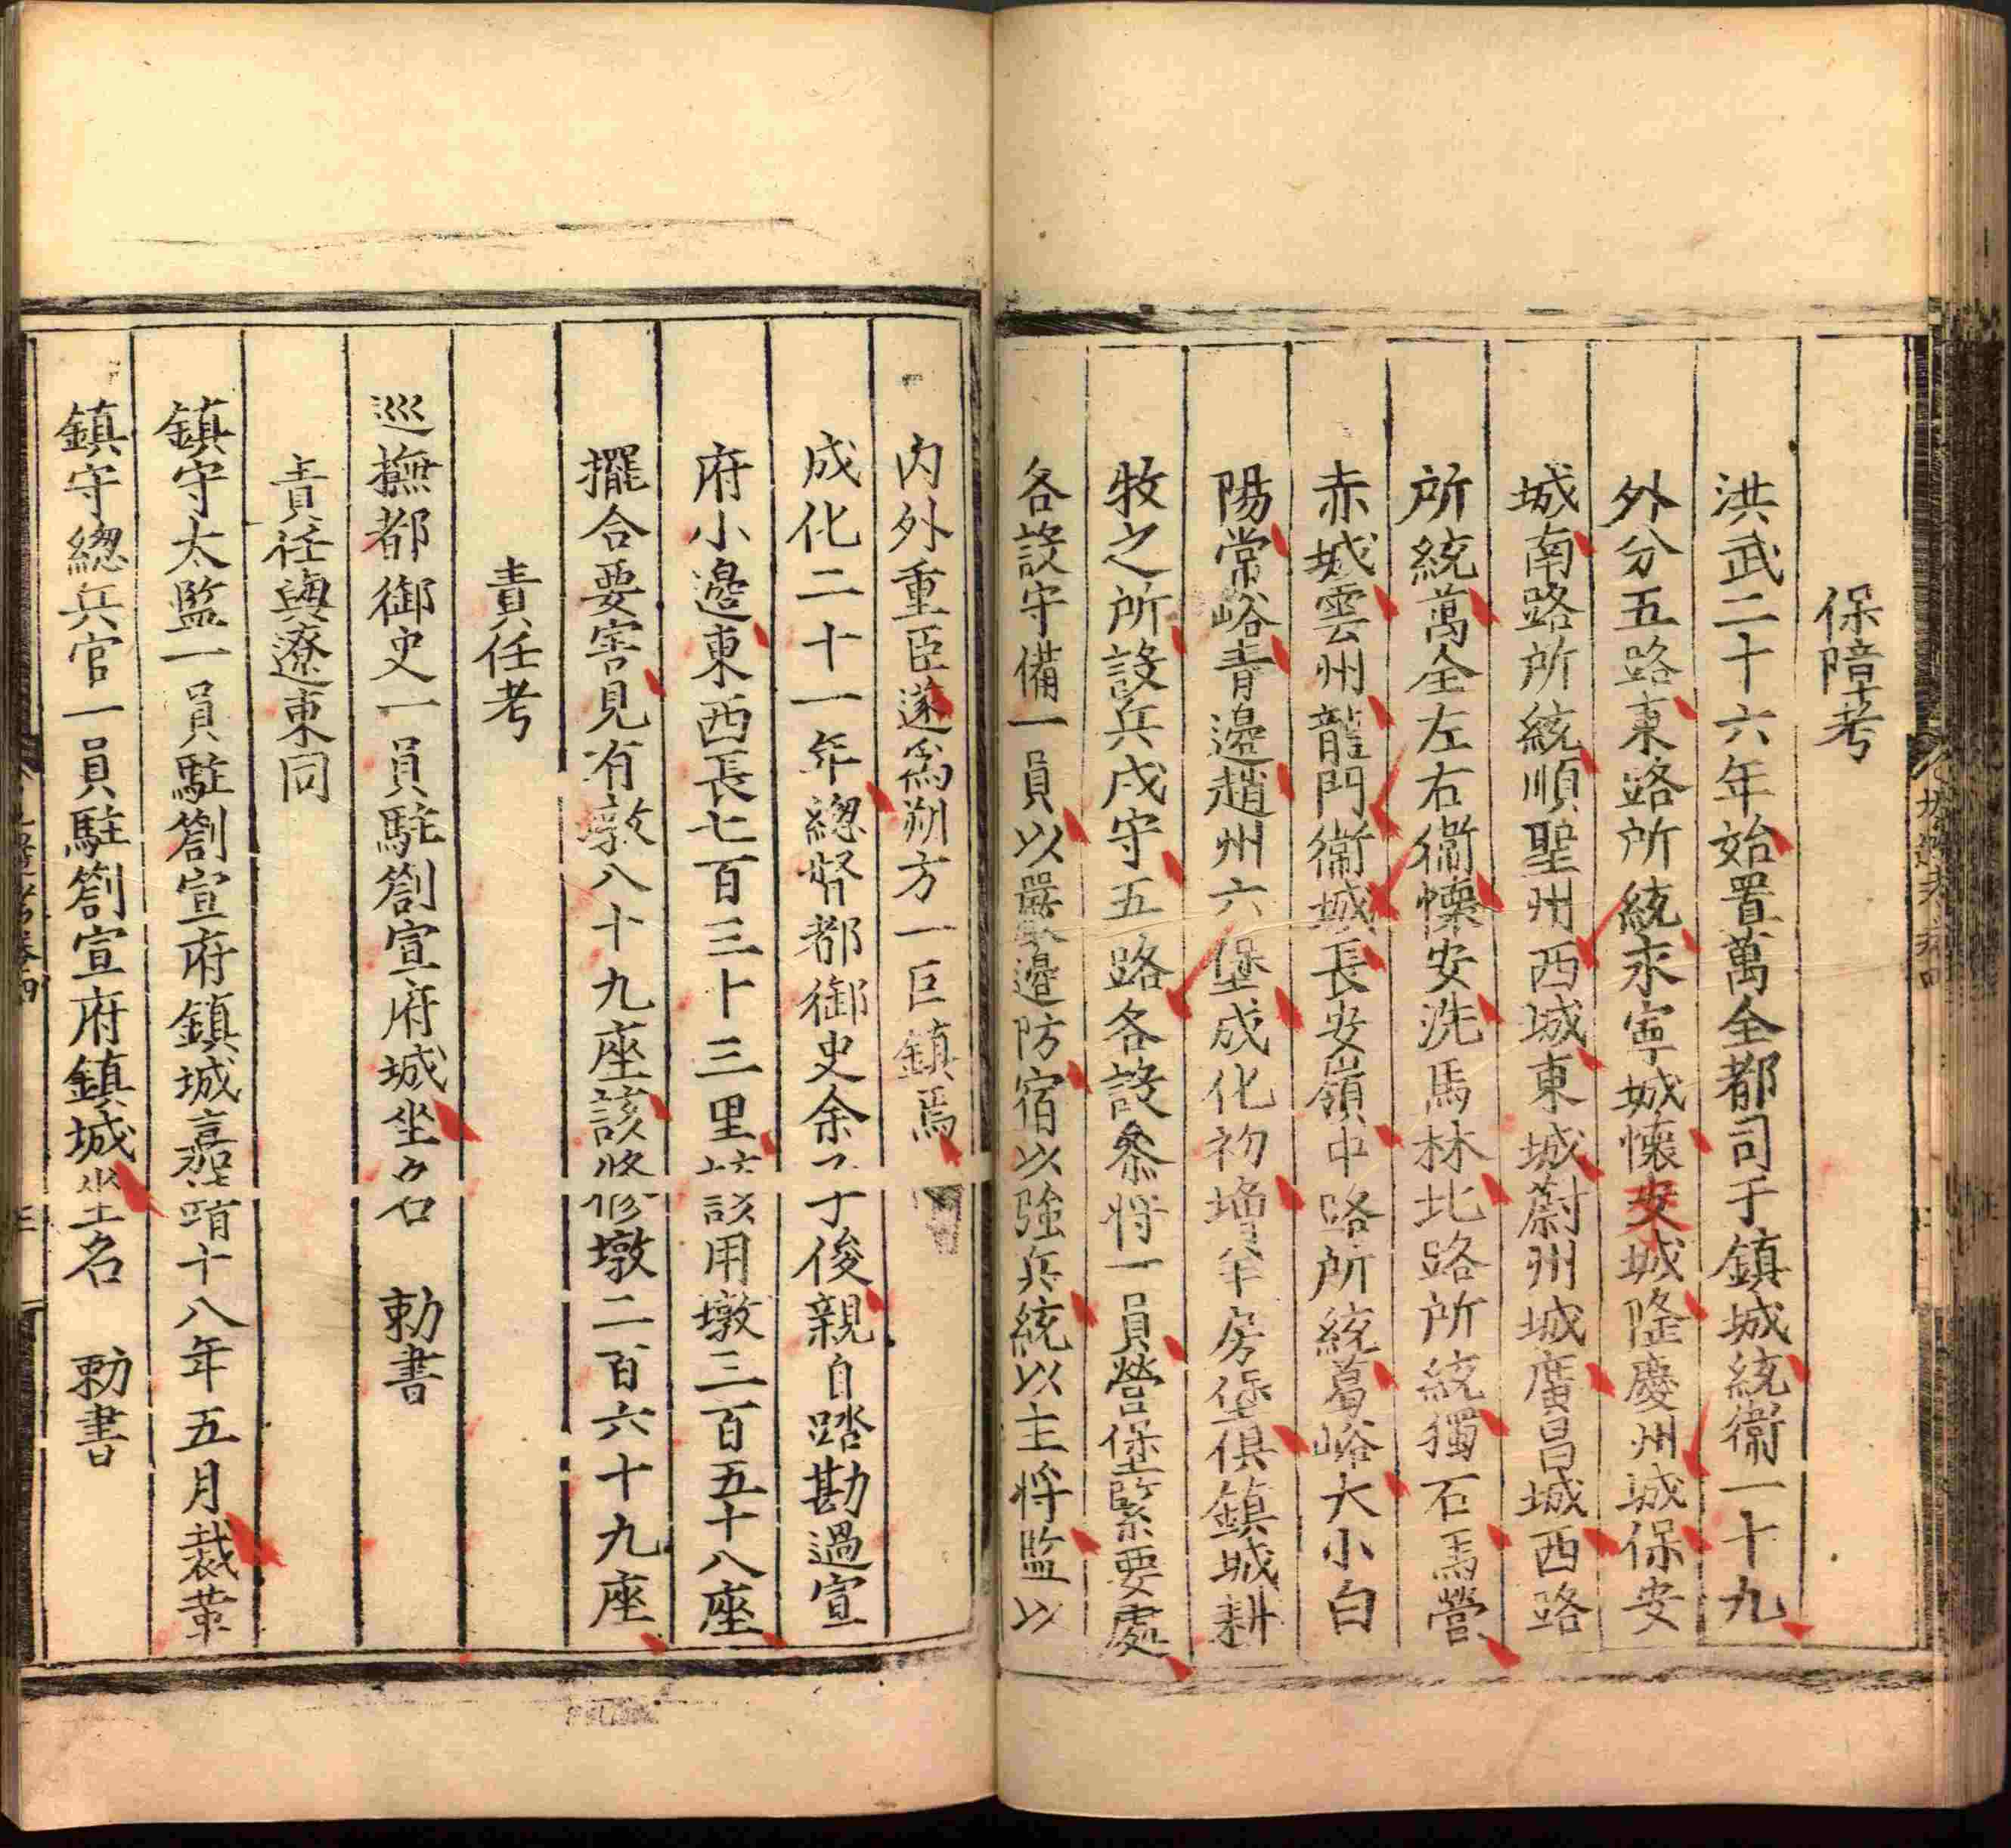 保障考
洪武二十六年始置萬全都司于鎮城統衞一十九
外分五路東路所統永寧城懷安城隆慶州城保安
城南路所統順聖州西城東城蔚州城廣昌城西路
所統萬全左右衞懷安洗馬林北路所統獨石馬營
赤城雲州龍門衞城長安嶺中路所統葛峪大小白
陽常峪青邊趙州六堡成化初增羊房堡俱鎮城耕
牧之所設兵戍守五路各設叅将一員營堡緊要處
各設守備一員以嚴邊防宿以強兵統以主将監以
内外重臣遂爲朔方一巨鎮焉
成化二十一年緫督都御史余子俊親自踏勘過宣
府小邊東西長七百三十三里該用墩三百五十八座
擺合要害見有墩八十九座該修墩二百六十九座
責任考
巡撫都御史一員駐劄宣府城坐名 勅書
責任與遼東同
鎮守太監一員駐劄宣府鎮城嘉靖十八年五月裁革
鎮守緫兵官一員駐劄宣府鎮城坐名 勅書